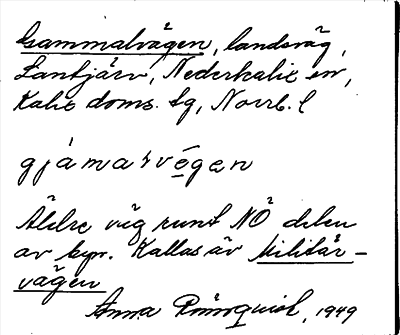 Gammalvägen, landsväg,
Lantjärv, Nederkalix sn,
Kalix doms. tg, Norrb. l
gjámarvégen
Äldre väg runt NÖ delen
av byn. Kallas äv Militär-
vägen
Anna Rönnquist, 1949